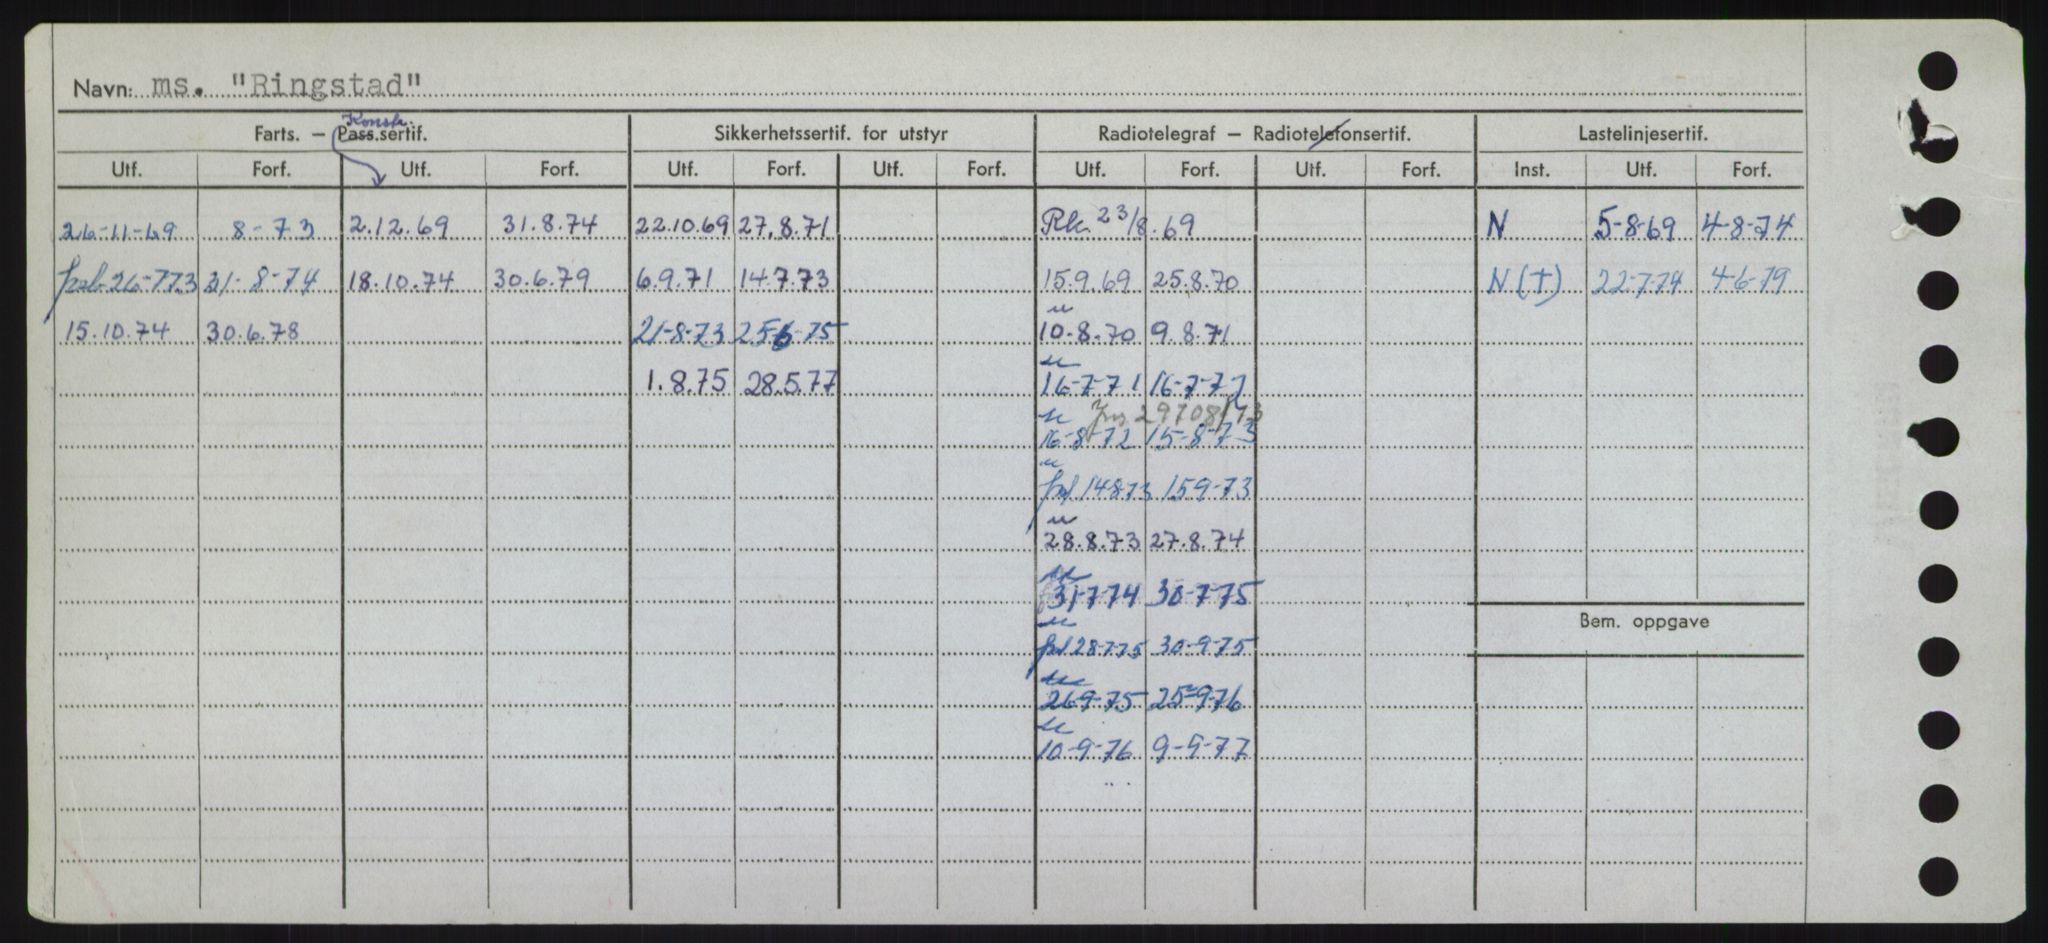 Navn: ms. "Ringstad"
Konstr.
Farts. – Pass.sertif. Sikkerhetssertif. for utstyr Radiotelegraf – Radiotelefonsertif. Lastelinjesertif.
Utf. Forf. Utf. Forf. Utf. Forf. Utf. Forf. Utf. Forf. Utf. Forf. Inst. Utf. Forf.
26-11-69 8-73 2.12.69 31.8.74 22.10.69 27.8.71 Rk. 23/8.69 N 5-8-69 4-8-74
26-7-73 31-8-74 18.10.74 30.6.79 6.9.71 14.7.73 15.9.69 25.8.70 N (T) 22-7-74 4-6-79
15.10.74 30.6.78 21-8-73 25-6-75 10.8.70 9.8.71
1.8.75 28.5.77 16-7-71 16-7-72
29708/73
16-8-72 15-8-73
14-8-73 15-9-73
28.8.73 27.8.74
31-7-74 30-7-75
Bem. oppgave
28-7-75 30-9-75
26-9-75 25-9-76
10-9-76 9-9-77